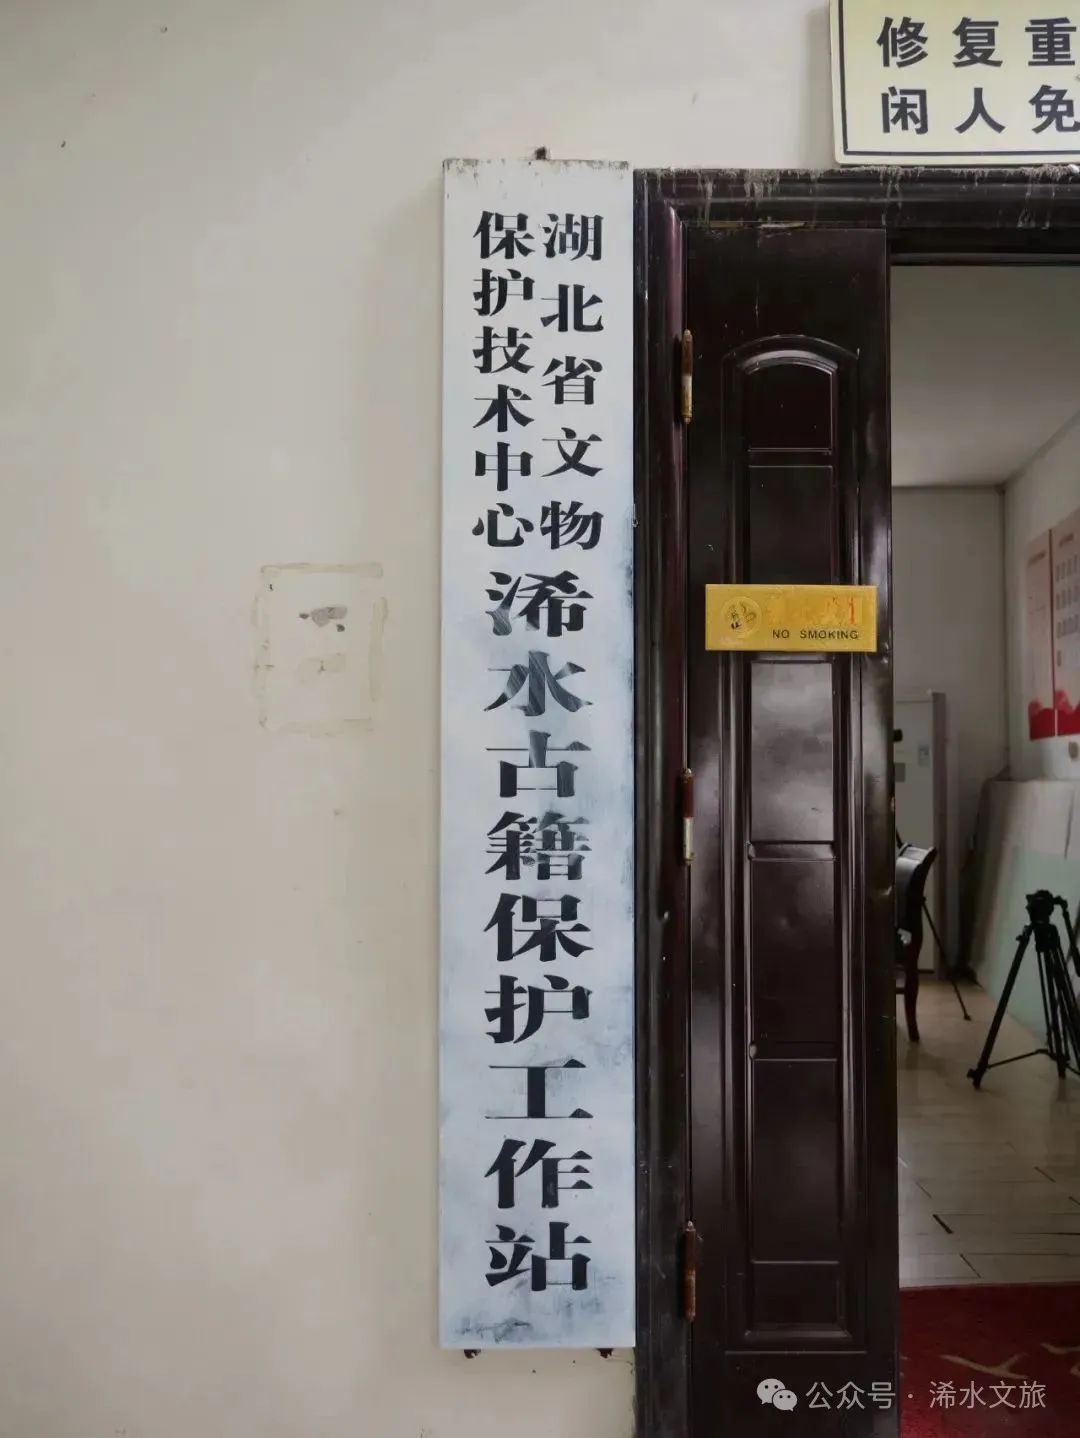 修复重
闲人免
湖北省文物
保护技术中心
浠水古籍保护工作站
NO SMOKING
公众号·浠水文旅